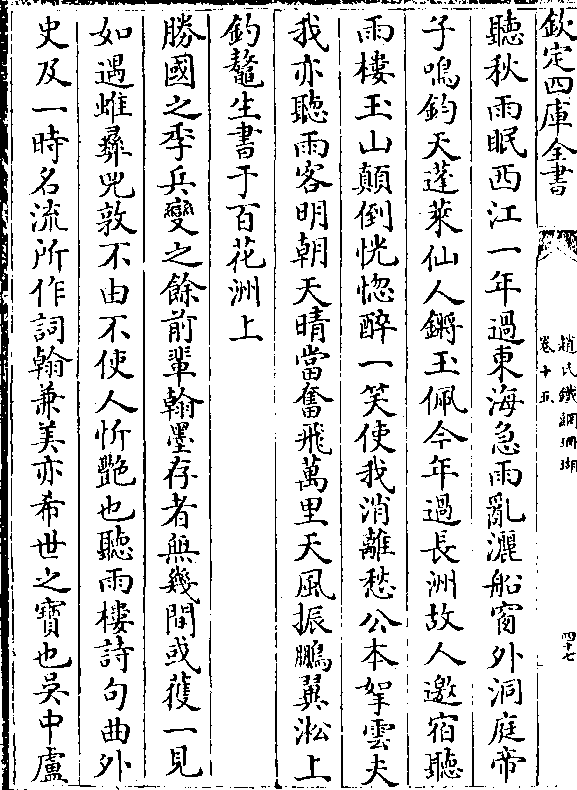 欽定四庫全書
趙氏鐵網珊瑚
卷十五
四十七
聽秋雨眠西江一年過東海急雨亂灑船窗外洞庭帝
子鳴鈞天蓬萊仙人鏘玉佩今年過長洲故人邀宿聽
雨樓玉山顛倒恍惚醉一笑使我消離愁公本拏雲夫
我亦聽雨客明朝天晴當奮飛萬里天風振鵬翼淞上
釣鼇生書于百花洲上
勝國之季兵變之餘前輩翰墨存者無幾間或獲一見
如遇蜼彞兕敦不由不使人忻艷也聽雨樓詩句曲外
史及一時名流所作詞翰兼美亦希世之寶也吳中盧